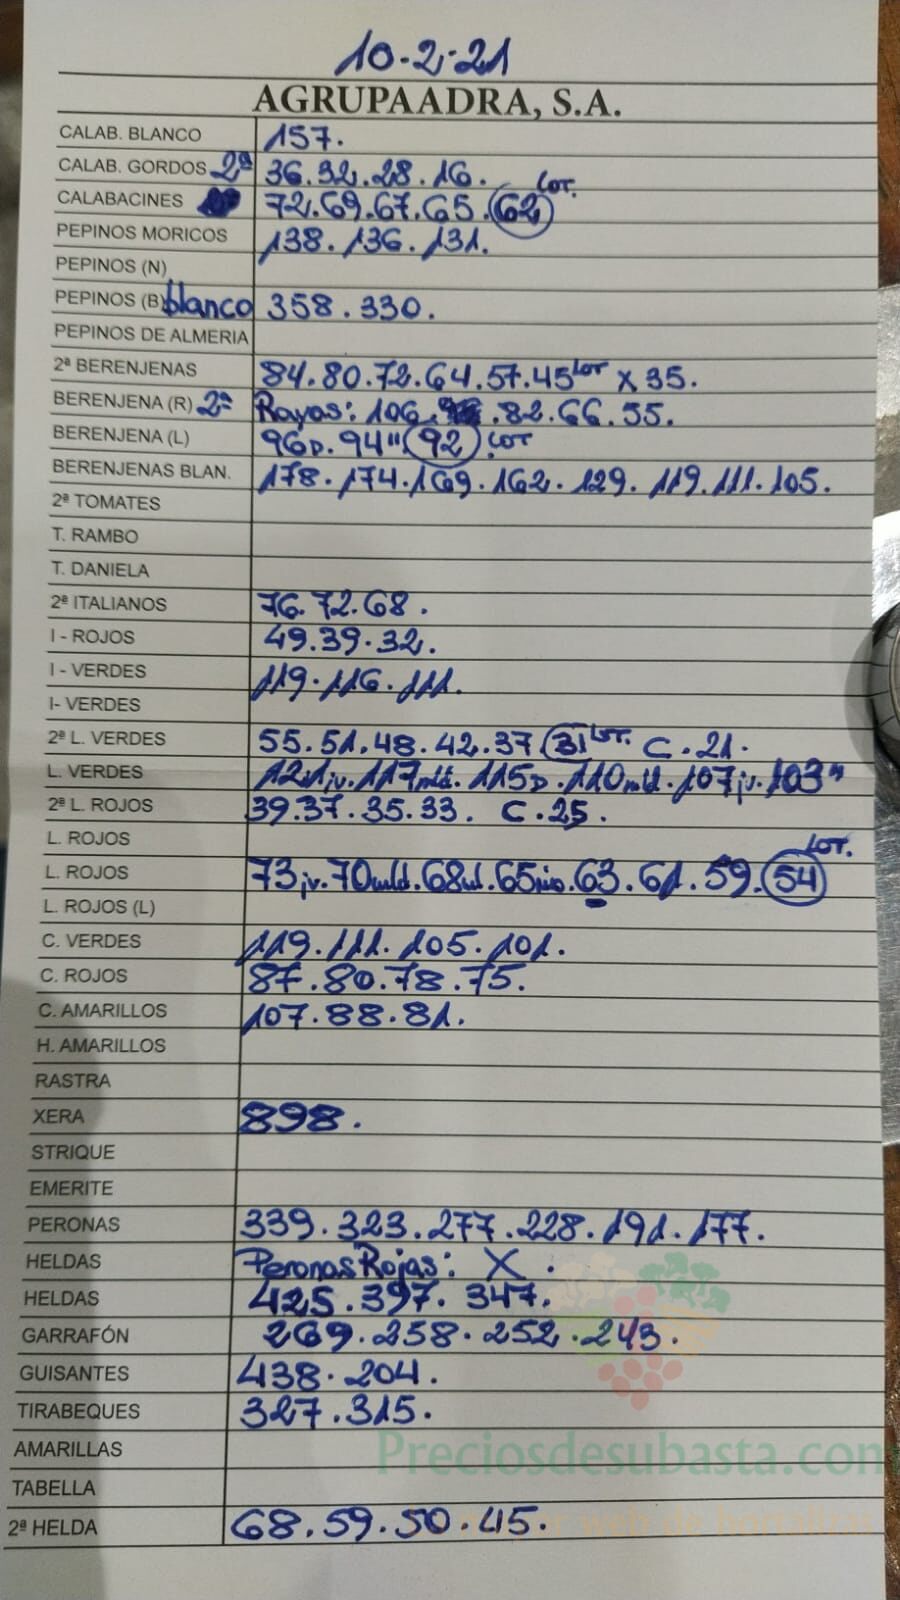 10-2-21
AGRUPAADRA, S.A.
CALAB. BLANCO 157.
CALAB. GORDOS 2ª 36.32.28.16.
CALABACINES 72.69.67.65.62 LOT.
PEPINOS MORICOS 138.136.131.
PEPINOS (N)
PEPINOS (B) blanco 358.330.
PEPINOS DE ALMERIA
2ª BERENJENAS 84.80.72.64.57.45 LOT x 35.
BERENJENA (R) 2ª Rayas: 106. .82.66.55.
BERENJENA (L) 96D.94".92 LOT
BERENJENAS BLAN. 178.174.169.162.129.119.111.105.
2ª TOMATES
T. RAMBO
T. DANIELA
2ª ITALIANOS 76.72.68.
I - ROJOS 49.39.32.
I - VERDES 119.116.111.
I- VERDES
2ª L. VERDES 55.51.48.42.37 31 LOT. C.21.
L. VERDES 121jv.117mld.115D.110mld.107jv.103"
2ª L. ROJOS 39.37.35.33. C.25.
L. ROJOS
L. ROJOS 73jv.70mld.68ml.65nio.63.61.59.54 LOT.
L. ROJOS (L)
C. VERDES 119.111.105.101.
C. ROJOS 87.80.78.75.
C. AMARILLOS 107.88.81.
H. AMARILLOS
RASTRA
XERA 898.
STRIQUE
EMERITE
PERONAS 339.323.277.228.191.177.
HELDAS Peronas Rojas: X.
HELDAS 425.397.347.
GARRAFÓN 269.258.252.243.
GUISANTES 438.204.
TIRABEQUES 327.315.
AMARILLAS
Preciosdesubasta.com
TABELLA
2ª HELDA 68.59.50.45.
web de hortalizas